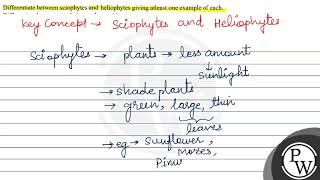 Differentiate between sciophytes and heliophytes giving atleast one example of each.
Key Concept → Sciophytes and Heliophytes
Sciophytes → plants → less amount
↓
sunlight
→ shade plants
→ green, large, thin
leaves
→ eg → Sunflower,
Mosses,
Pinus
PW